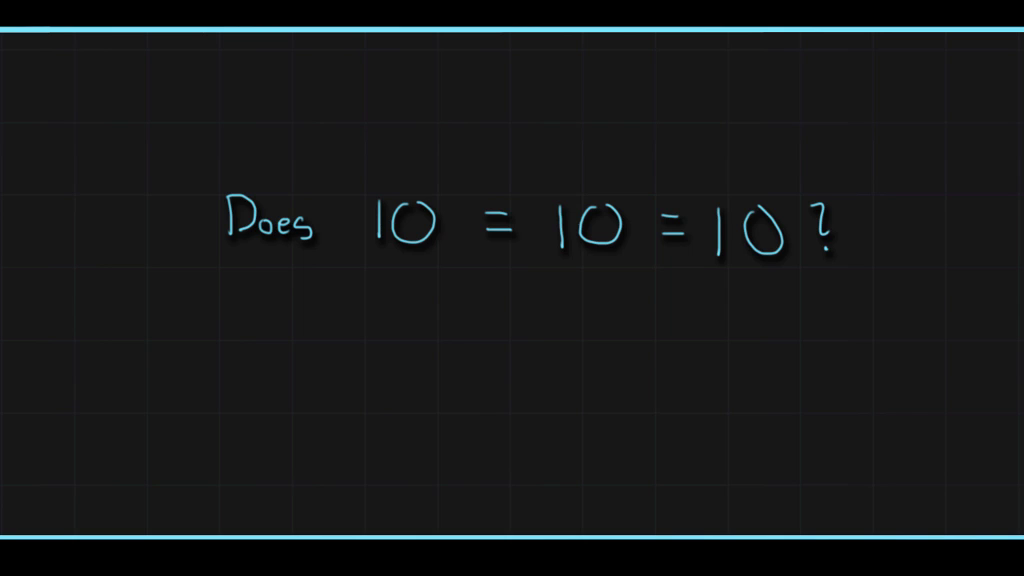 Does 10 = 10 = 10 ?